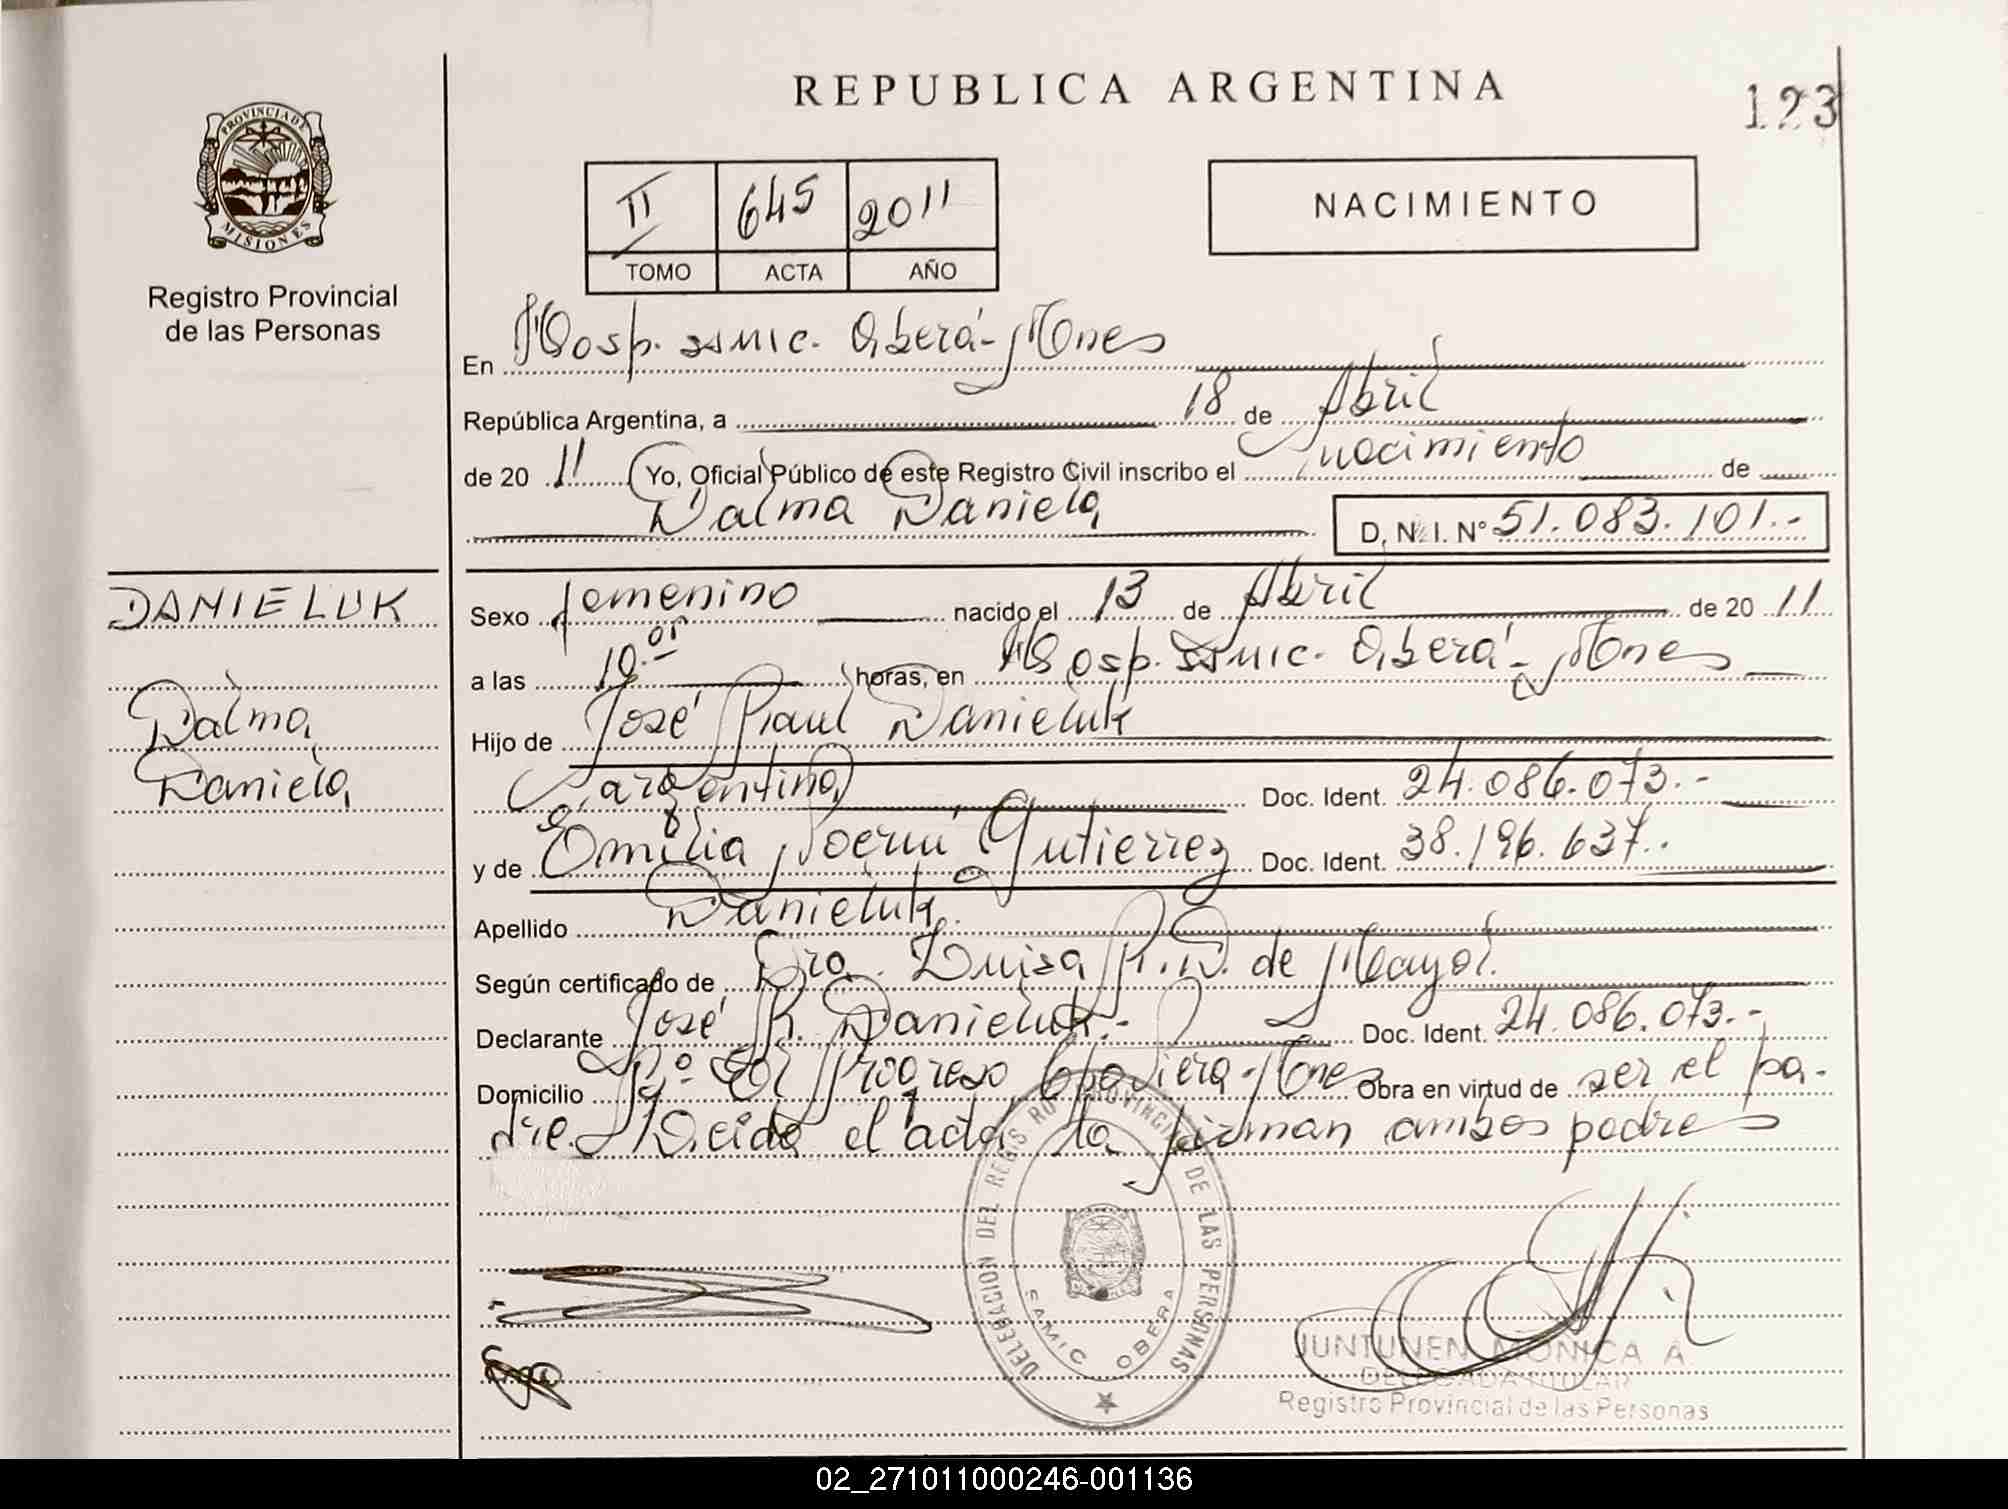 REPUBLICA ARGENTINA
123
PROVINCIA DE
MISIONES
Registro Provincial
de las Personas
II 645 2011
TOMO ACTA AÑO
NACIMIENTO
En Hosp. SAMIC. Oberá - Mnes
República Argentina, a 18 de Abril
de 20 11 Yo, Oficial Público de este Registro Civil inscribo el nacimiento de
Dalma Daniela D. N. I. Nº 51.083.101.-
DANIELUK
Sexo femenino nacido el 13 de Abril de 20 11
a las horas, en Hosp. SAMIC. Oberá - Mnes
Dalma
Hijo de José Raul Danieluk
Daniela
argentino Doc. Ident. 24.086.073.-
y de Emilia Gutierrez Doc. Ident. 38.196.637.-
Apellido Danieluk.
Según certificado de Dra. Luisa R. D. de Mayol.
Declarante José R. Danieluk.- Doc. Ident. 24.086.073.-
Domicilio Progreso Mnes Obra en virtud de ser el pa-
dre. Leida el acta la firman ambos padres
DELEGACION DEL REGISTRO PROVINCIAL DE LAS PERSONAS
SAMIC OBERA
JUNTUNEN MONICA A
DELEGADA TITULAR
Registro Provincial de las Personas
02_271011000246-001136